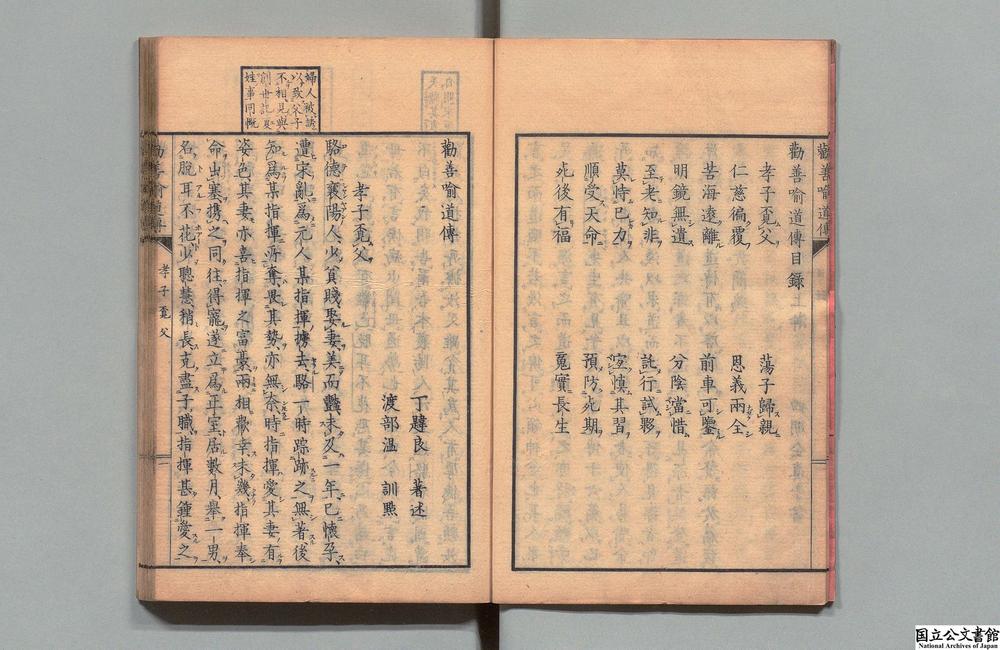 勸善喻道傳
勸善喻道傳目錄
孝子覓父 蕩子歸親
仁慈徧覆 恩義兩全
苦海遠離 前車可鑒
明鏡無遺 分陰當惜
至老知非 託行試夥
莫恃己力 宜慎其習
順受天命 預防死期
死後有福 冤實長生
婦人被誘
以致父子
不相見與
創世記夏
娃事同慨
勸善喻道傳
丁韙良 著述
渡部溫 訓點
孝子覓父
駱德襄陽人少貧賤娶妻美而豔未及一年已懷孕
遭宋亂爲元人某指揮擄去駱一時踪跡之無著後
知爲某指揮所奪畏其勢亦無奈時指揮愛其妻有
姿色其妻亦喜指揮之富豪兩相歡幸未幾指揮奉
命出塞携之同往得寵遂立爲正室居數月舉一男
名脫耳不花少聰慧稍長克盡子職指揮甚鍾愛之
勸善喻道傳
孝子覓父
一
国立公文書館
National Archives of Japan